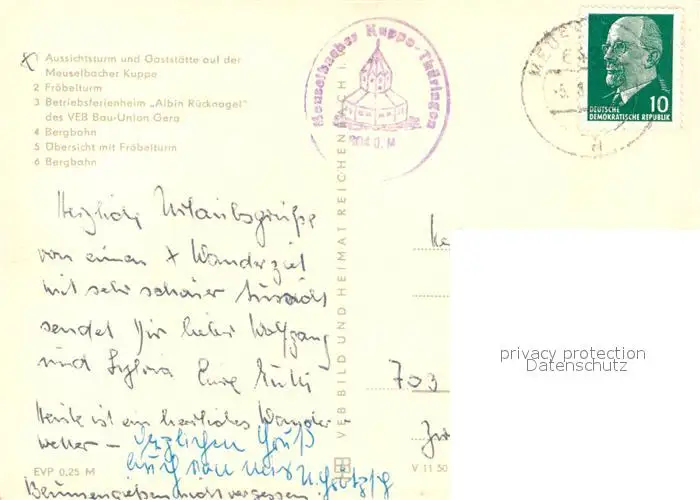 Meuselbacher Kuppe-Thüringen
DEUTSCHE
DEMOKRATISCHE REPUBLIK
10
x
1 Aussichtsturm und Gaststätte auf der
Meuselbacher Kuppe
2 Fröbelturm
3 Betriebsferienheim „Albin Rücknagel"
des VEB Bau-Union Gera
4 Bergbahn
5 Übersicht mit Fröbelturm
6 Bergbahn
Herzliche Urlaubsgrüße
von einem x Wanderziel
mit sehr schöner Aussicht
sendet Dir lieber Wolfgang
und Sylvia Eure
Heute ist ein herrliches Wander-
wetter –
Herzlichen Gruß
auch von
Blumengießen nicht vergessen!
EVP 0,25 M
VEB BILD UND HEIMAT REICHENBACH I.
703
V 11 50
privacy protection
Datenschutz